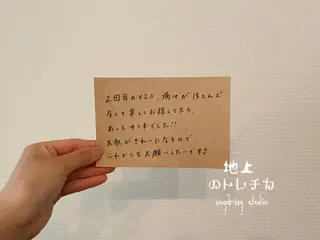 2回目のVIO、痛みがほとんど
なくて楽しくお話してたら、
あっとゆうまでした!!
お肌がきれいになるので、
これからもお願いしたいです
地上
のトレチカ
sugaring studio